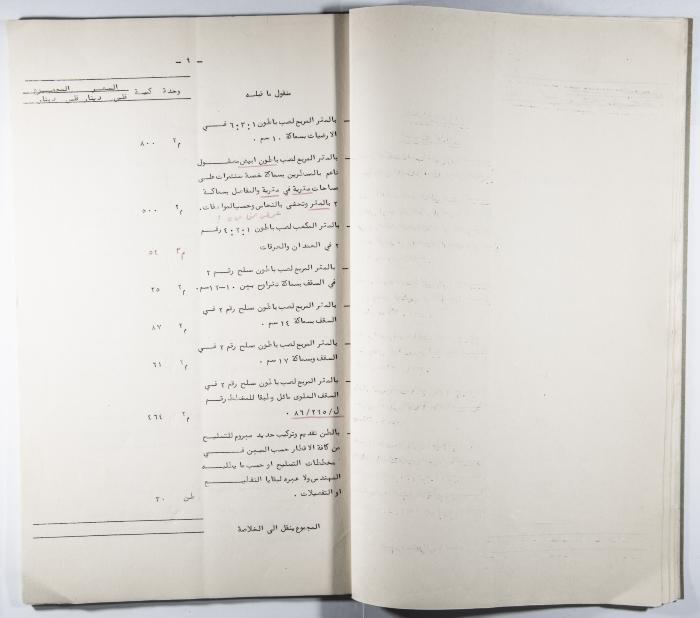 - ٩ -
منقول ما قبله
وحدة كمية السعر المجموع
فلس دينار فلس دينار
- بالمتر المربع لصب باطون ٦:٣:١ فــي
الارضيات بسماكة ١٠ سم . م٢ ٨٠٠
- بالمتر المربع لصب باطون ابيض مصقول
ناعم بالمسطرين بسماكة خمسة سنتمرات على
مساحات مترية في مترية والفاصل بسماكة
٢ بالمتر وتحفى بالنحاس وحسب المواصفات. م٢ ٥٠٠
- بالمتر المكعب لصب باطون ٤:٢:١ رقــم
٢ في الجدران والمرقات م٣ ٥٤
- بالمتر المربع لصب باطون مسلح رقــم ٢
في السقف بسماكة تتراوح بين ١٠-١٢سم. م٢ ٢٥
- بالمتر المربع لصب باطون مسلح رقم ٢ في
السقف بسماكة ١٤ سم . م٢ ٨٧
- بالمتر المربع لصب باطون مسلح رقم ٢ فــي
السقف وبسماكة ١٧ سم . م٢ ٦١
- بالمتر المربع لصب باطون مسلح رقم ٢ فــي
السقف العلوي مائل وطبقا للمخطط رقــم
ل/٨٦/٢١٥ . م٢ ٤٦٤
- بالطن تقديم وتركيب حديد مبروم للتسليح
من كافة الاقطار حسب المبين فــــي
مخططات التسليح او حسب ما يطلبــه
المهندس ولا عبرة لبقايا التقطيــع
او التفصيلات . طن ٣٠
المجموع ينقل الى الخلاصة